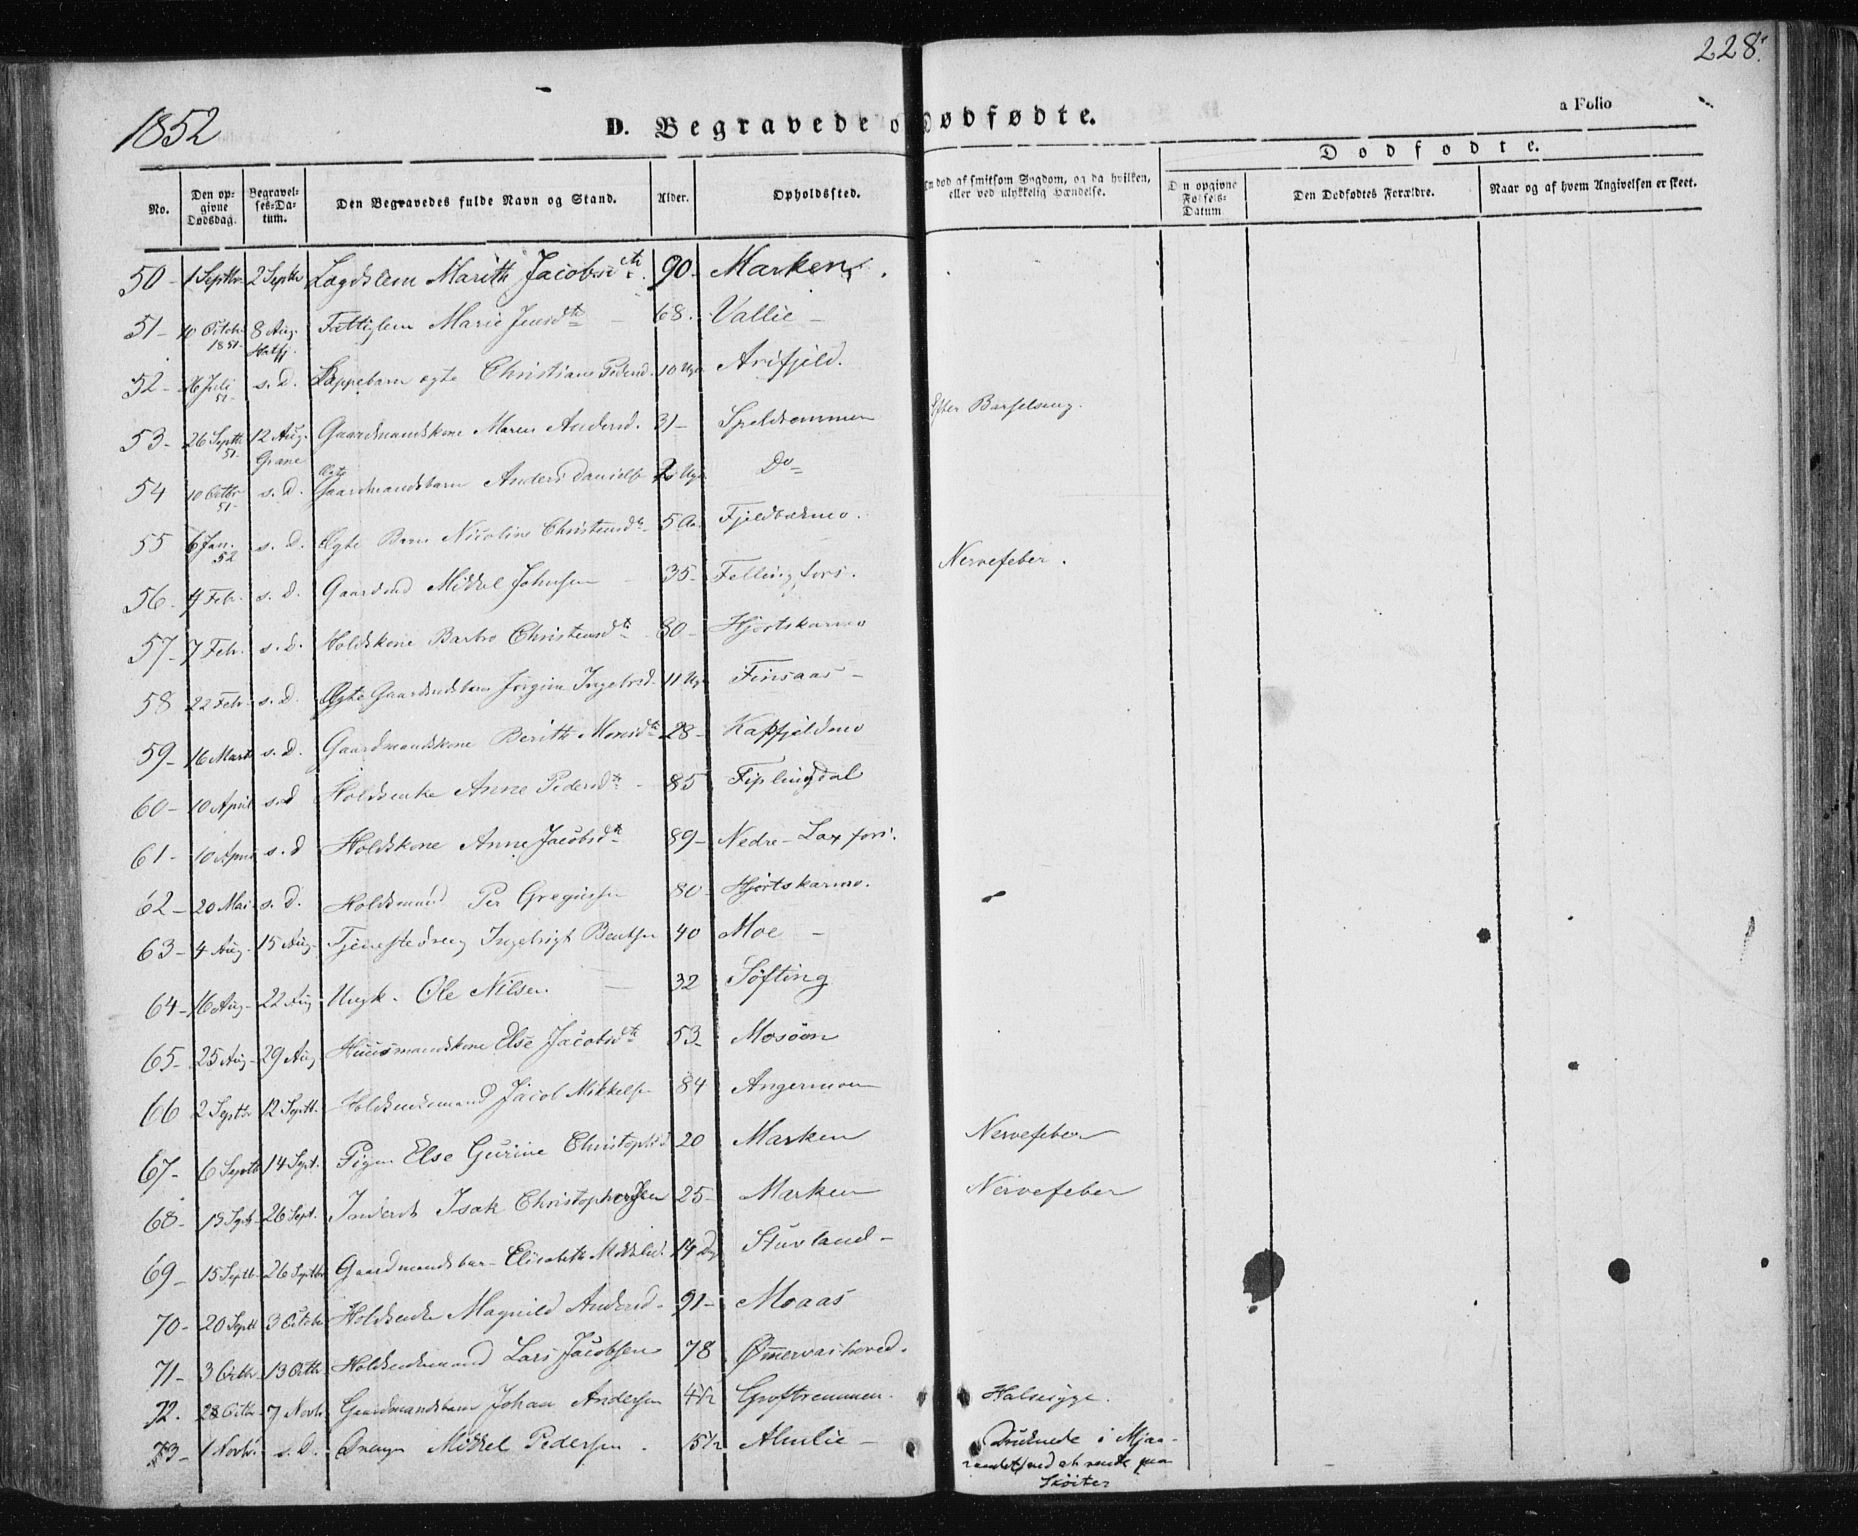 228.
1852
D. Begravede o Dødfødte.
a Folio
No.
Den opgivne Dødsdag.
Begravelses-Datum.
Den Begravedes fulde Navn og Stand.
Alder.
Opholdssted.
en død af smitsom Sygdom, og da hvilken, eller ved ulykkelig Hændelse.
Dødfødte.
Den opgivne Fødsels-Datum
Den Dødfødtes Forældre.
Naar og af hvem Angivelsen er skeet.
50 - 1 Septbr 2 Septbr Lægdslem Marith Jacobsdtr. 90 - Marken.
51 - 10 Octobr 1851 8 Aug. Hatfj. Fattiglem Marie Jensdtr - 68. Vallie -
52 - 26 Juli 51 s. D. Lappebarn ægte Christiane Pedersd. 10 Uger Arifjeld.
53 - 26 Septb 51 12 Aug. Grane Gaardmandskone Maren Andersd. 31 - Speldremmen Efter Barselseng.
54 10 Octbr 51 s. D. Ægte Gaardmandsbarn Anders Danielsen 2 Uger Do
55 6 Jan. 52 s. D. Ægte Barn Nicoline Christensdtr 5 Aar Fjeldbækmo.
56 - 4 Febr. s. D. Gaardmd Mikkel Johnsen - 35 - Fellingfors. Nervefeber.
57 - 7 Febr. s. D. Holdskone Barbro Christensdtr 80 - Hjortskarmo
58 22 Febr. s. D. Ægte Gaardmdsbarn Jørgine Ingebrsd. 11 Uger Finsaas -
59 - 16 Marts s. D. Gaardmandskone Berith Monsdtr 28 - Kapfjeldmo
60 - 10 April s. D Holdsenke Anne Pedersdtr - 85 Fiplingdal
61 - 10 April s. D Holdskone Anne Jacobsdtr 89 - Nedre-Laxfors.
62 - 20 Mai s. D. Holdsmand Per Gregusen 80 - Hjortskarmo.
63 - 4 Aug. 15 Aug. Tjenestedreng Ingebrigt Bentsen 40 Moe -
64 - 16 Aug. 22 Aug Ungk. Ole Nilsen 32 Søfting
65 - 25 Aug. 29 Aug Huusmandskone Else Jacobsdtr 53 - Mosøen
66 2 Septbr 12 Septb. Holdsmand Jacob Mikkelsen 84 Angermoen
67 - 6 Septb 14 Sept. Pigen Else Gurine Christophsd 20 Marken Nervefeber
68 - 15 Septb 26 Sept. Inderst Isak Christophersen 25 - Marken Nervefeber
69 - 15 Septb 26 Septbr Gaardmandsbarn Elisabeth Mikkelsd. 14 Dg Stuvland -
70 - 20 Septb 3 Octobr Holdsenke Magnild Andersd - 91 - Moaas
71 - 3 Octbr 13 Octb Holdsmand Lars Jacobsen 78 Ømmervashoved.
72. 28 Octbr 7 Novbr Gaardmandsbarn Johan Andersen 4 1/2 Grøftremmen. Halssyge.
73 - 1 Novbr. s. D. Drengen Mikkel Pedersen. 15 1/2 Almlie - Druknede i Mjaa-
vandet ved at rende paa
Skøiter